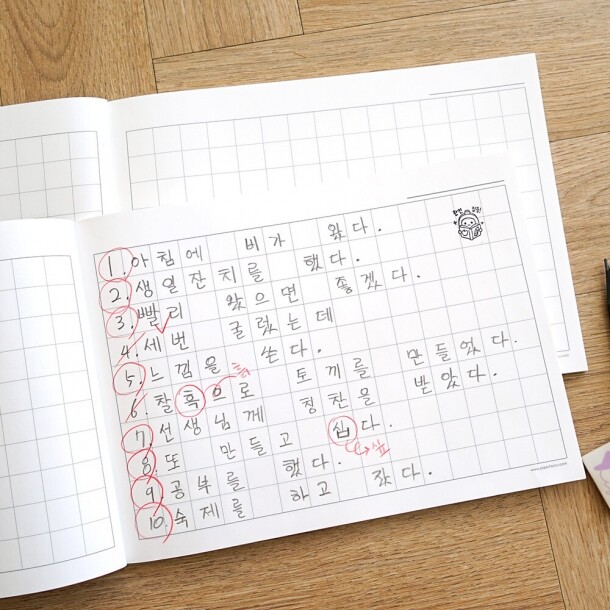 1. 아침에 비가 왔다.
2. 생일잔치를 했다.
3. 빨리 왔으면 좋겠다.
4. 세번 굴렀는데
5. 느낌을 쓴다.
6. 찰흑으로 토끼를 만들었다.
흙
7. 선생님께 칭찬을 받았다.
8. 또 만들고 십다.
싶
9. 공부를 했다.
10. 숙제를 하고 갔다.